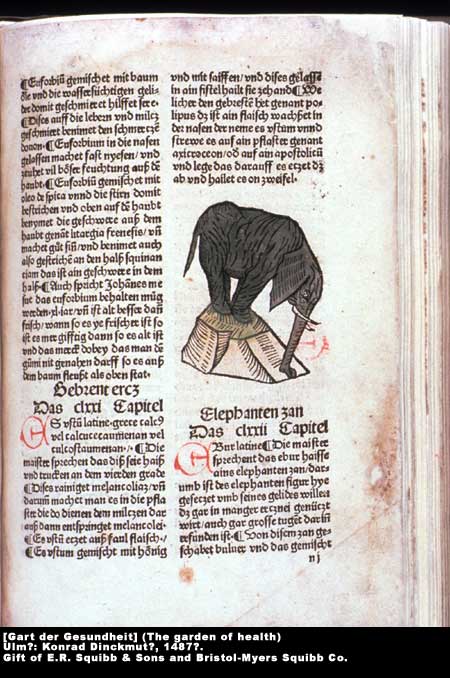 ¶Euforbiũ gemischet mit baum
öle vnd die wassersüchtigen geli=
der domit geschmieret hilffet sere·
¶Dises auff die lebern vnd miltz
geschmieret benimet den schmerczẽ
dovon·¶Euforbium in die nasen
gelassen machet fast nyesen/vnd
zeuhet vil böser feuchtung auß dẽ
haubt·¶Euforbiũ gemischet mit
oleo de spica vnnd die stirn domit
bestrichen vnd oben auf dẽ haubt
benymet die geschwere auß dem
haubt genãt litargia frenesis/vñ
machet gůt siñ/vnd benimet auch
also gestrichẽ an den halß squinan
ciam das ist ain geschwere in dem
halß·¶Auch spricht Johãnes me
sue das euforbium behalten müg
werden·xl·iar/vñ ist alt besser dañ
frisch/wann so es ye frischer ist so
ist es mer gifftig dann so es alt ist
vnd das merck dobey das man dẽ
gũmi nit genahen darff so es auß
dem baum fleußt als oben stat·
Gebrent ercz
Das clxxi Capitel
ES vstũ latine·grece calcꝰ
vel calcucecaumenan vel
calcostaumenan·/·¶Die
maister sprechen das diß seie haiß
vnd trucken an dem vierden grade
¶Dises rainiget melancoliaz/vñ
darum machet man es in die pfla
ster die do dienen dem milczen dar
auß dann entspringet melancolei·
¶Es vstũ eczet auß faul flaisch·/
¶Es vstum gemischt mit hönig
vnd mit saiffen/vnd dises gelassẽ
in ain fistel hailt sie zehand¶We
licher den gebresté het genant po=
lipus dz ist ain flaisch wachßet in
der nasen der neme es vstum vnnd
strewe es auf ain pflaster genant
axicroceon/oď auf ain apostolicũ
vnd lege das darauff es eczet dz
ab vnd hailet es on zweifel·
Elephanten zan
Das clxxii Capitel
EBur latine¶Die maister
sprechent das ebur haisse
ains elephanten zan/dar=
umb ist des elephanten figur hye
geseczet vmb seines gelides willen
dz gar in manger ercznei genüczt
wirt/auch gar grosse tugẽt darin
erfunden ist·¶Von disem zan ge=
schabet puluer vnd das gemischt
n j
[Gart der Gesundheit] (The garden of health)
Ulm?: Konrad Dinckmut?, 1487?.
Gift of E.R. Squibb & Sons and Bristol-Myers Squibb Co.